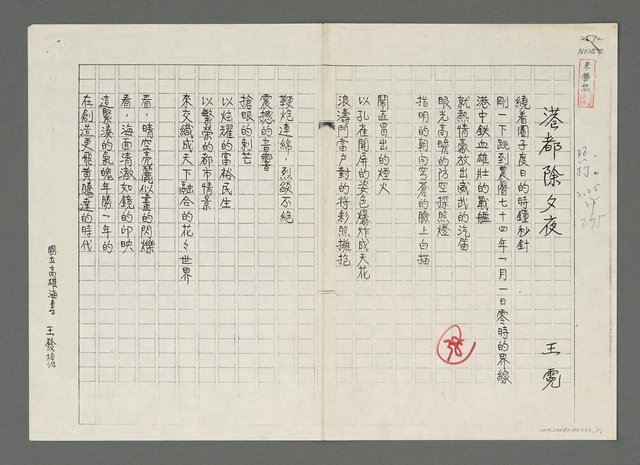 港都除夕夜
王霓
繞着圈子度日的時鐘秒針
剛一下跳到農曆七十四年一月一日零時的界線
港中鉄血雄壯的戰艦
就熱情豪放出威武的汽笛
眼光高瞻的防空探照燈
指明的朝向穹蒼的臉上白描
鬧區冒出的煙火
以孔雀開屏的姿色爆炸成天花
浪濤門當戶對的將彩照擁抱
鞭炮連綿,烈燄不絕
震撼的音響
搶眼的刺芒
以炫耀的富裕民生
以繁榮的都市情景
來交織成天下融合的花々世界
看,晴空亮麗似畫的閃爍
看,海面清澈如鏡的印映
這緊湊的氣魄年勝一年的
在創造更飛黃騰達的時代
國立高雄海專 王發
38